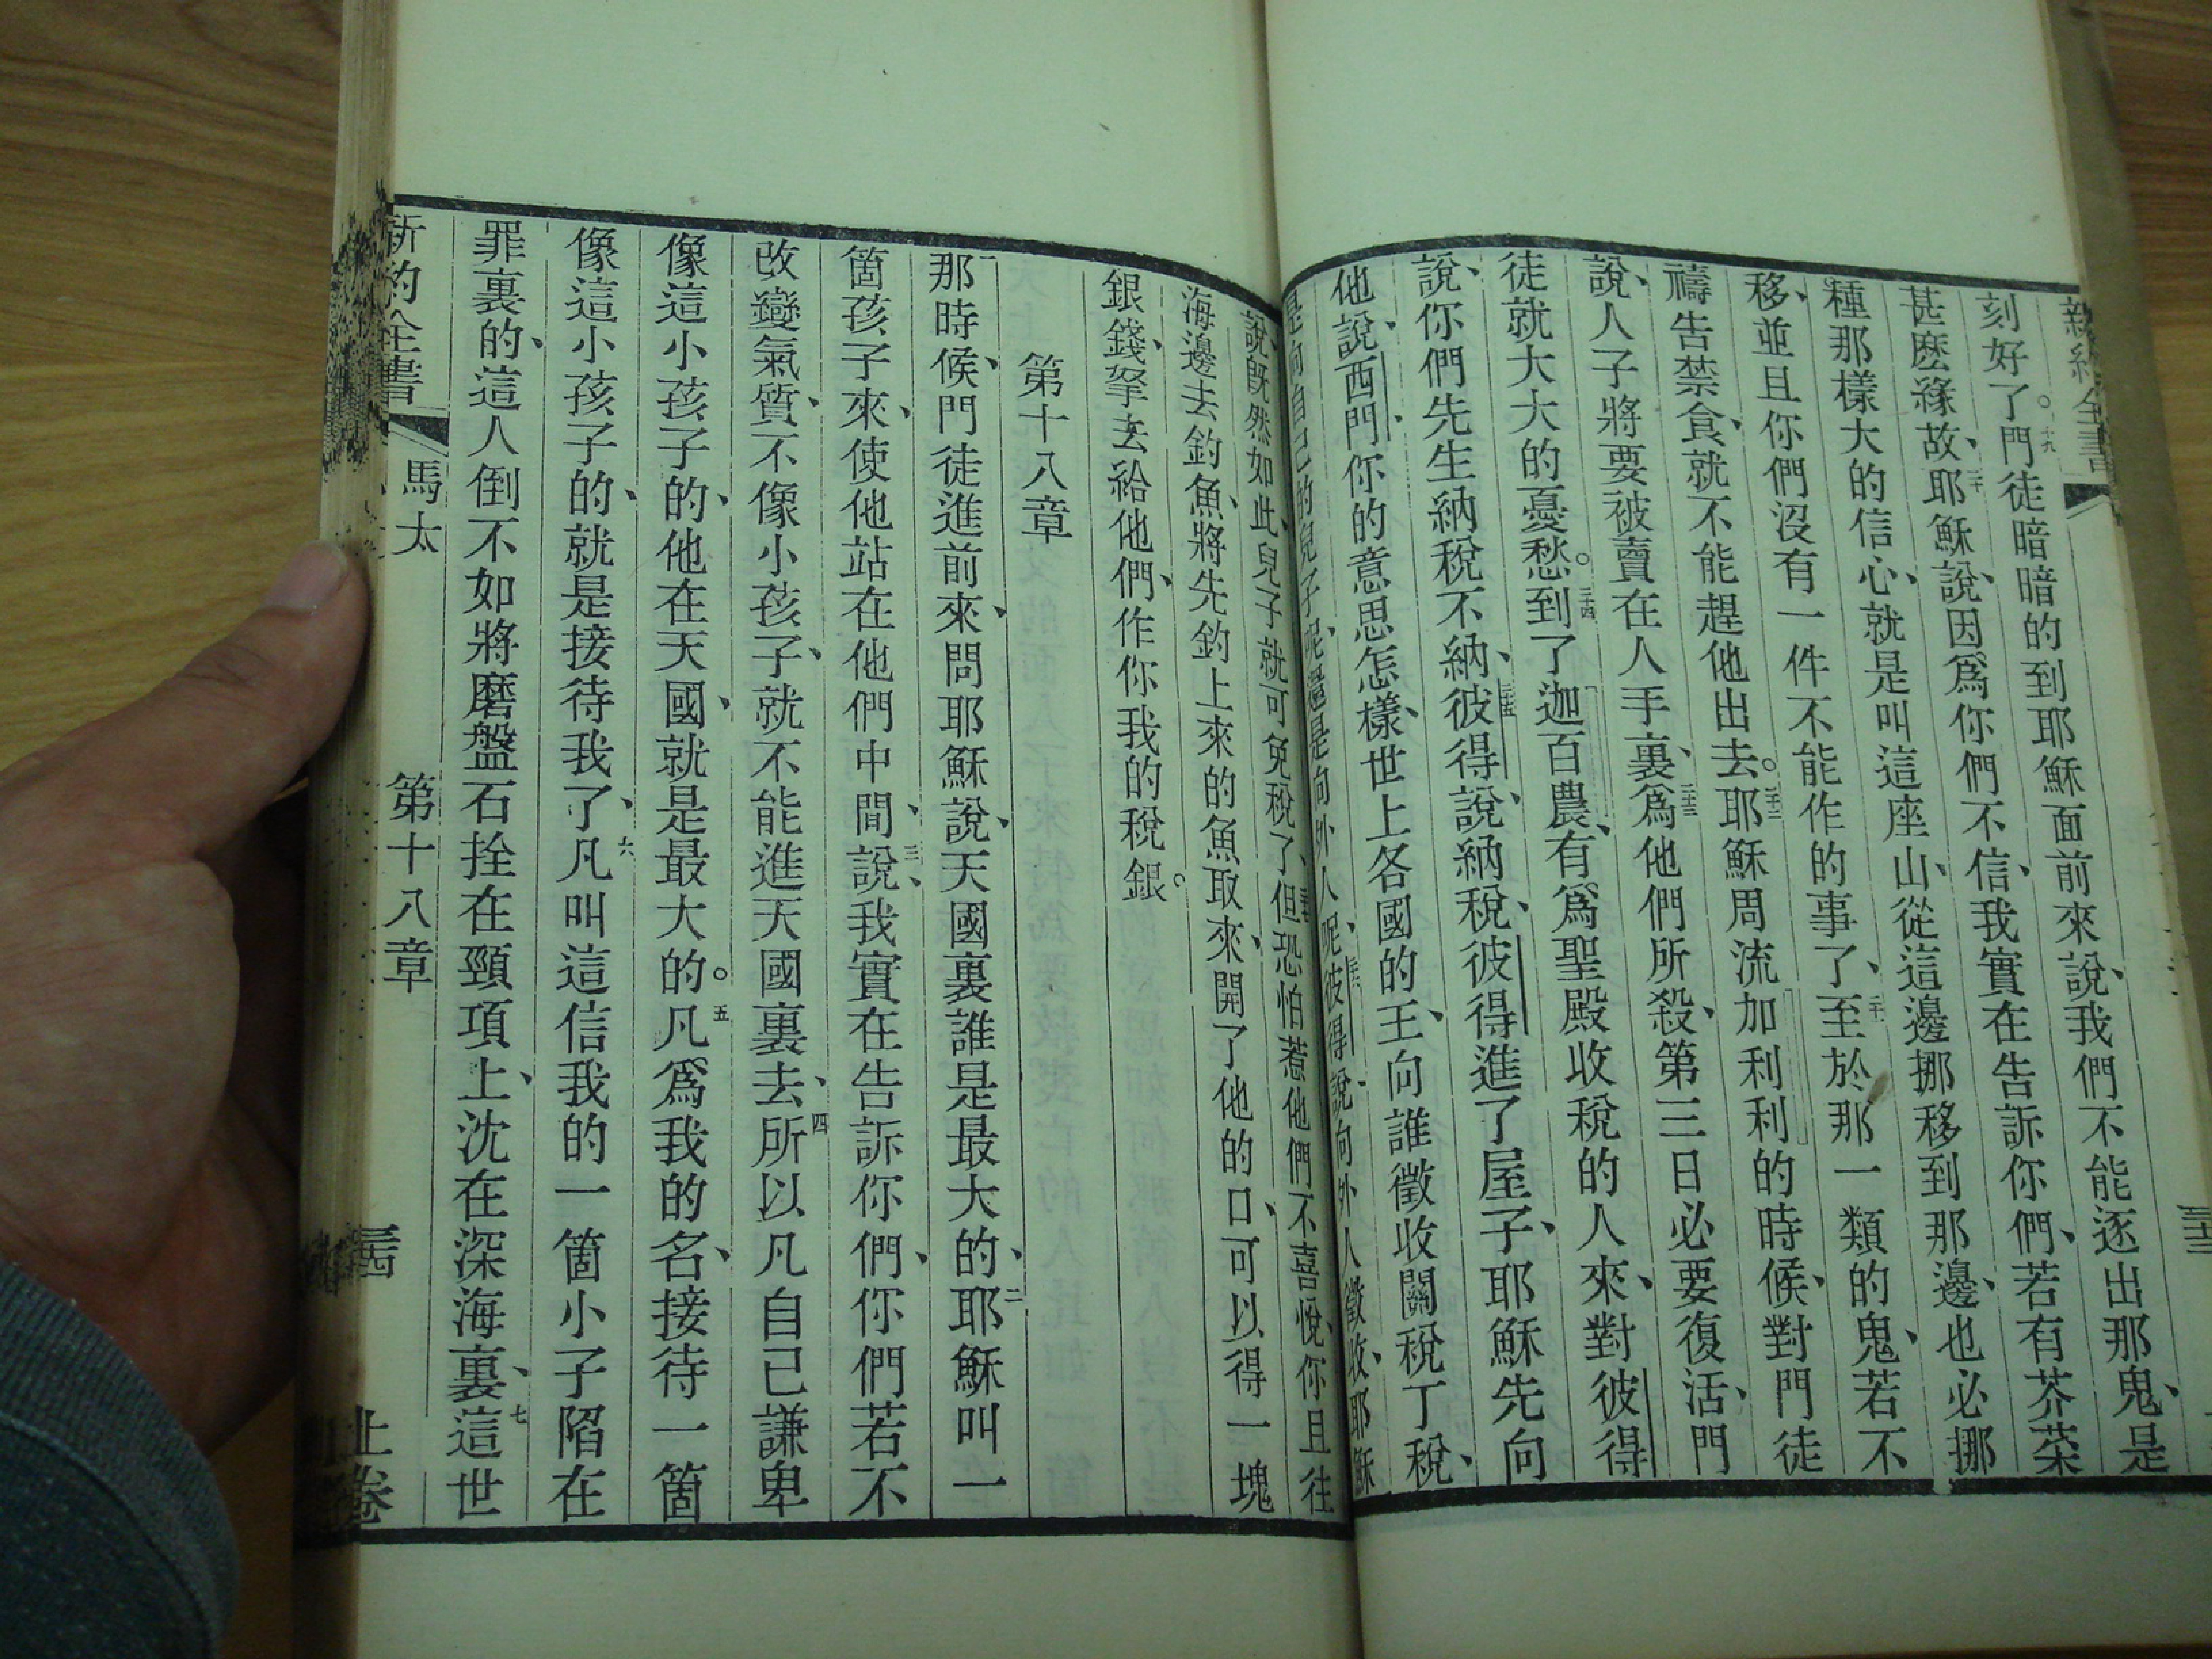 新約全書
刻好了。十九門徒暗暗的到耶穌面前來說、我們不能逐出那鬼、是
甚麽緣故、二十耶穌說、因爲你們不信、我實在告訴你們、若有芥菜
種那樣大的信心、就是叫這座山、從這邊挪移到那邊、也必挪
移、並且你們沒有一件不能作的事了、二十一至於那一類的鬼、若不
禱告禁食、就不能趕他出去。二十二耶穌周流加利利的時候、對門徒
說、人子將要被賣在人手裏、二十三爲他們所殺、第三日必要復活、門
徒就大大的憂愁。二十四到了迦百農、有爲聖殿收稅的人來、對彼得
說、你們先生納稅不納、二十五彼得說、納稅、彼得進了屋子、耶穌先向
他說、西門、你的意思怎樣、世上各國的王、向誰徵收關稅丁稅、
是向自己的兒子呢、還是向外人呢、二十六彼得說、向外人徵收、耶穌
說、旣然如此、兒子就可免稅了、二十七但恐怕惹他們不喜悅、你且往
海邊去釣魚、將先釣上來的魚取來、開了他的口、可以得一塊
銀錢、拏去給他們、作你我的稅銀。
第十八章
一那時候、門徒進前來、問耶穌說、天國裏誰是最大的、二耶穌叫一
箇孩子來、使他站在他們中間、三說、我實在告訴你們、你們若不
改變氣質、不像小孩子、就不能進天國裏去、四所以凡自己謙卑
像這小孩子的、他在天國、就是最大的。五凡爲我的名、接待一箇
像這小孩子的、就是接待我了、六凡叫這信我的一箇小子陷在
罪裏的、這人倒不如將磨盤石拴在頸項上、沈在深海裏、七這世
新約全書 馬太 第十八章 三十四 上卷